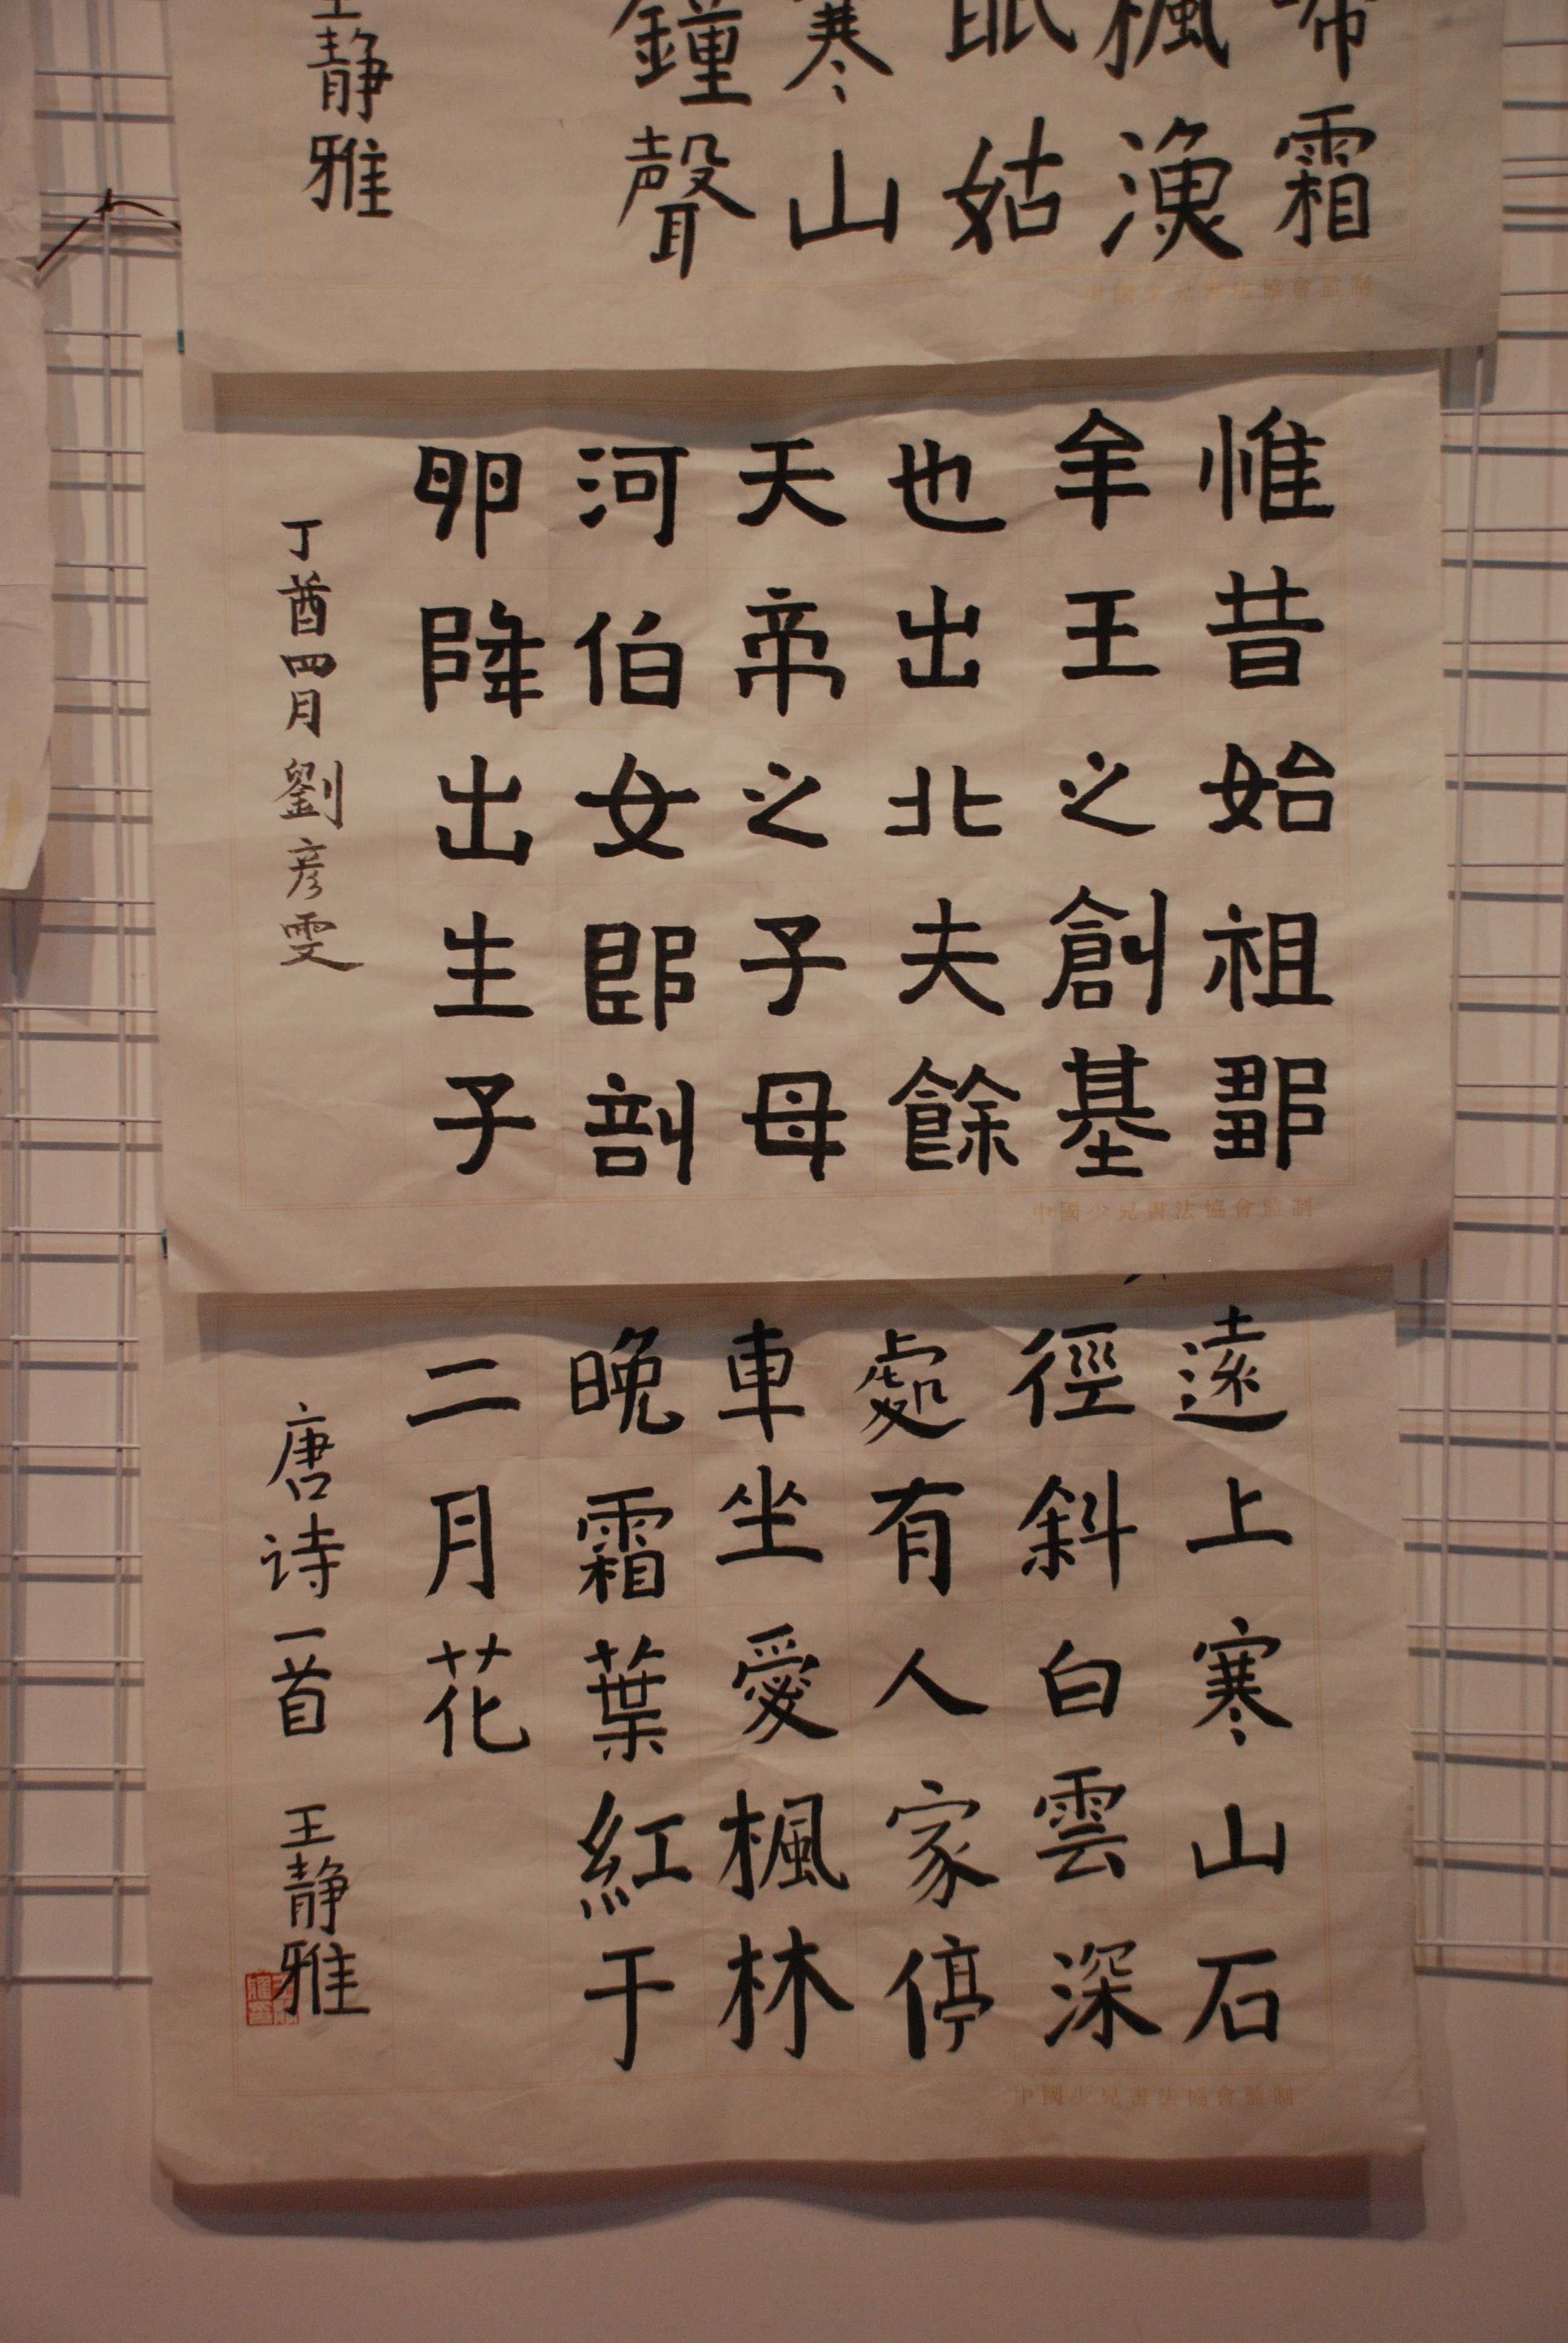 啼霜
楓漁
眠姑
寒山
鐘聲
王静雅
中國少兒書法協會監制
惟昔始祖鄒
牟王之創基
也出北夫餘
天帝之子母
河伯女郎剖
卵降出生子
丁酋四月劉彦雯
中國少兒書法協會監制
遠上寒山石
徑斜白雲深
處有人家停
車坐愛楓林
晚霜葉紅于
二月花
唐诗一首 王静雅
中國少兒書法協會監制